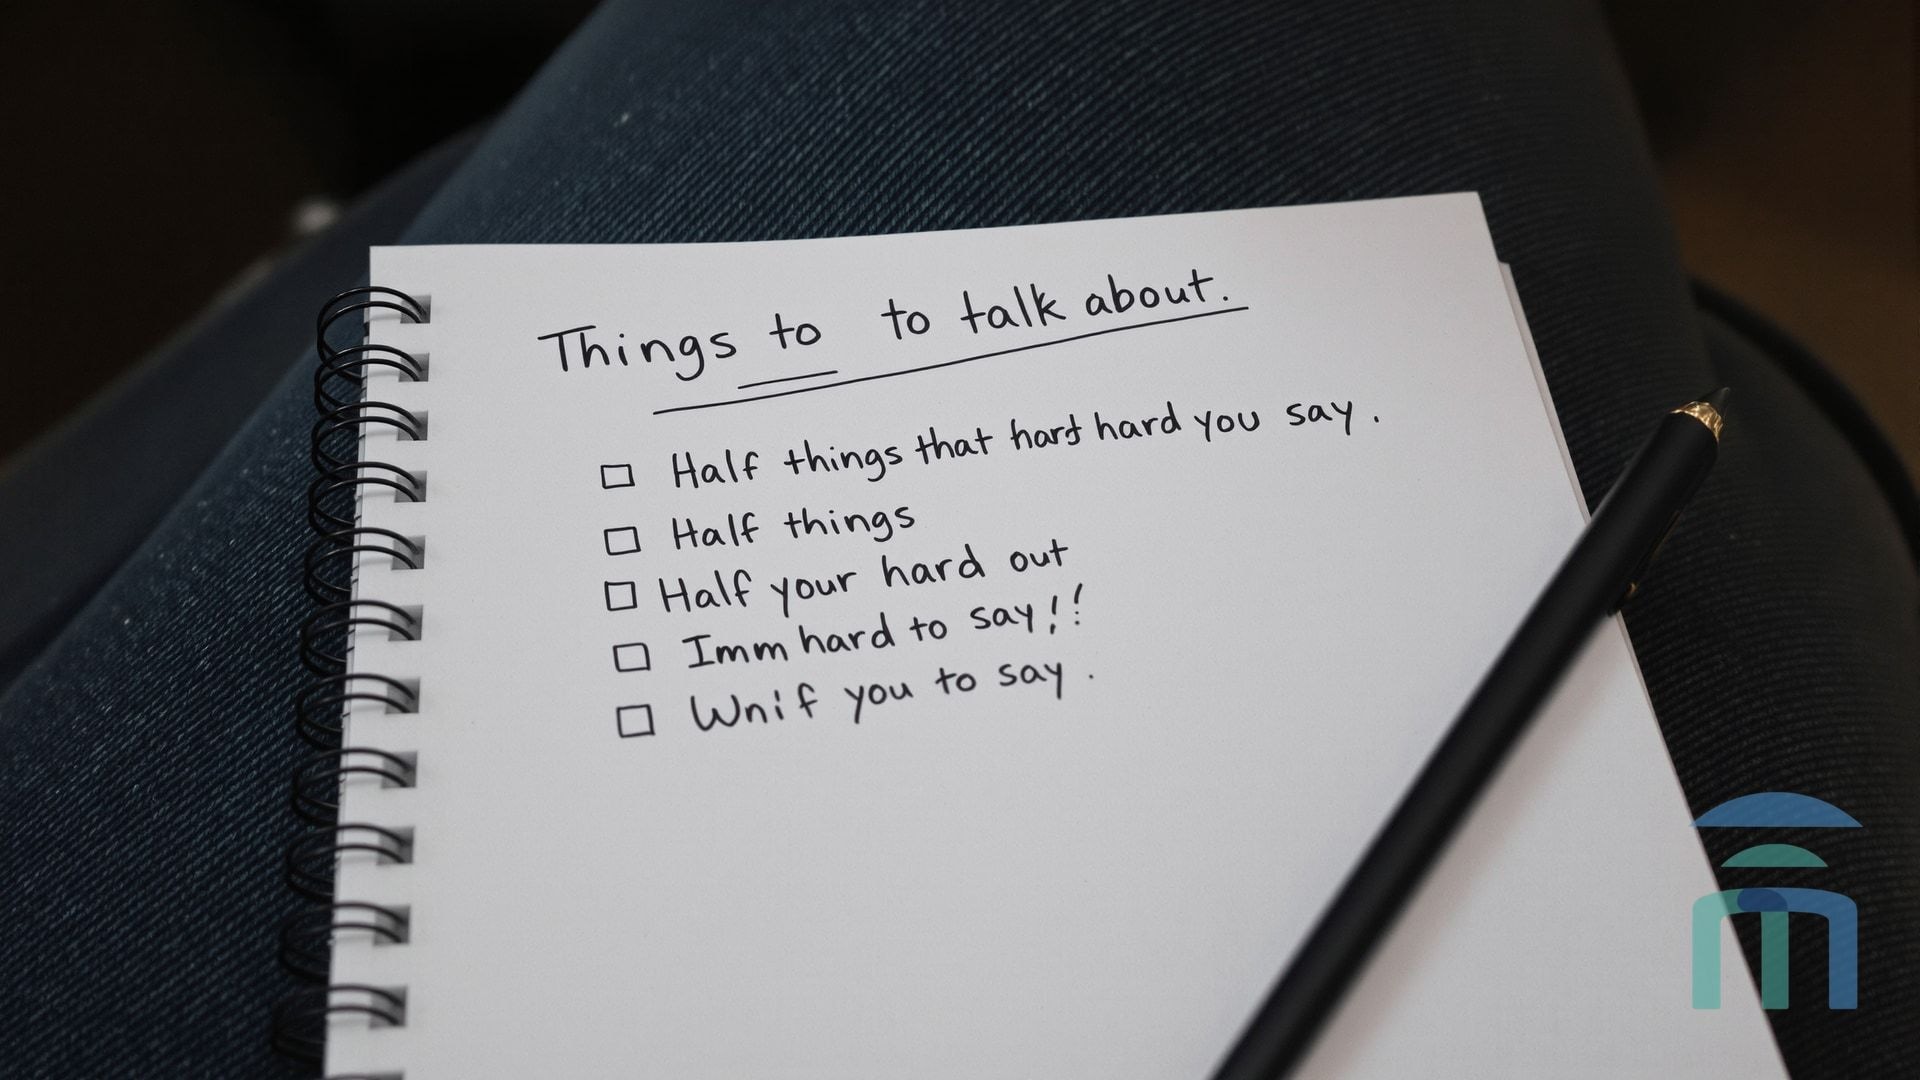 Things to to talk about.
Half things that hart hard you say.
Half things
Half your hard out
Imm hard to say!!
Wnif you to say.